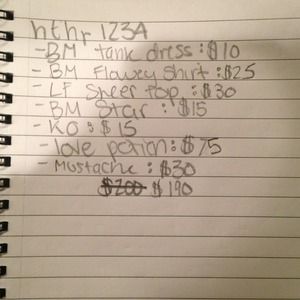 hthr 123A
- BM tank dress : $10
- BM Flowey Shirt : $25
- LF Sheer Top : $30
- BM Star : $15
- KO : $15
- love potion : $75
- Mustache : $30
$200 $190